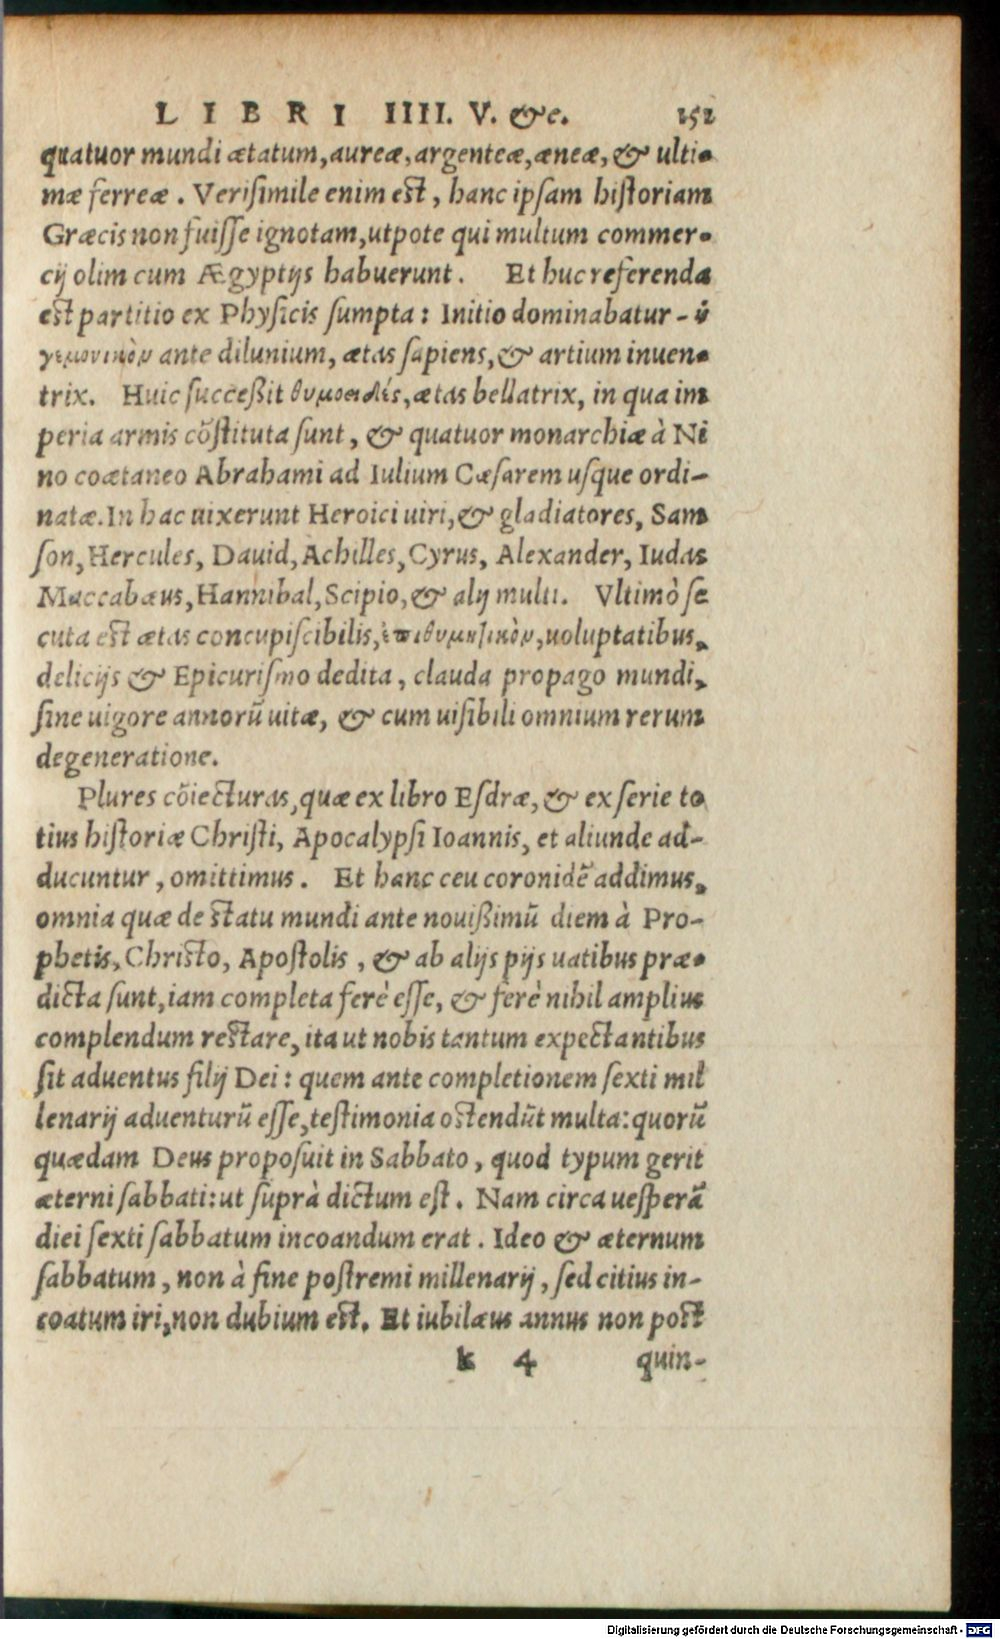 LIBRI IIII. V. &c. 152
quatuor mundi ætatum, aureæ, argenteæ, æneæ, & ulti-
mæ ferreæ. Verisimile enim est, hanc ipsam historiam
Græcis non fuisse ignotam, utpote qui multum commer-
cij olim cum Ægyptijs habuerunt. Et huc referenda
est partitio ex Physicis sumpta: Initio dominabatur - ἡ
γεμονικὸν ante diluuium, ætas sapiens, & artium inuen-
trix. Huic successit θυμοειδὲς, ætas bellatrix, in qua im
peria armis cōstituta sunt, & quatuor monarchiæ à Ni
no coætaneo Abrahami ad Iulium Cæsarem usque ordi-
natæ. In hac uixerunt Heroici uiri, & gladiatores, Sam
son, Hercules, Dauid, Achilles, Cyrus, Alexander, Iudas
Maccabæus, Hannibal, Scipio, & alij multi. Vltimò se
cuta est ætas concupiscibilis, ἐπιθυμητικὸν, uoluptatibus,
delicijs & Epicurismo dedita, clauda propago mundi,
sine uigore annorū uitæ, & cum uisibili omnium rerum
degeneratione.
Plures cōiecturas, quæ ex libro Esdræ, & ex serie to
tius historiæ Christi, Apocalypsi Ioannis, et aliunde ad-
ducuntur, omittimus. Et hanc ceu coronidē addimus,
omnia quæ de statu mundi ante nouißimū diem à Pro-
phetis, Christo, Apostolis, & ab alijs pijs uatibus præ-
dicta sunt, iam completa ferè esse, & ferè nihil amplius
complendum restare, ita ut nobis tantum expectantibus
sit aduentus filij Dei: quem ante completionem sexti mil
lenarij aduenturū esse, testimonia ostendūt multa: quorū
quædam Deus proposuit in Sabbato, quod typum gerit
æterni sabbati: ut suprà dictum est. Nam circa uesperā
diei sexti sabbatum incoandum erat. Ideo & æternum
sabbatum, non à fine postremi millenarij, sed citius in-
coatum iri, non dubium est. Et iubilæus annus non post
k 4 quin-
Digitalisierung gefördert durch die Deutsche Forschungsgemeinschaft - DFG